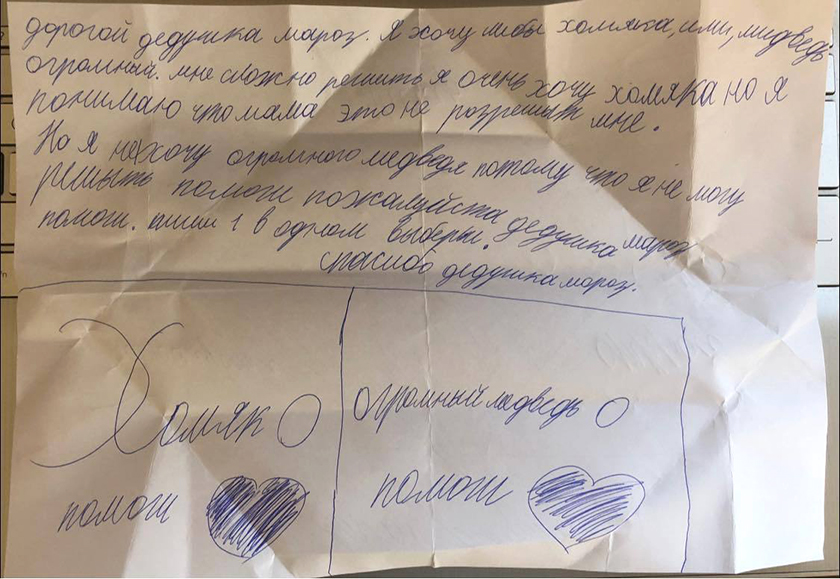 дорогой дедушка мароз. Я хочу либы хомяка, или, мидведь
огромный. мне сложно решить я очень хочу хомяка но я
понимаю что мама это не розрешат мне.
Но я нехочу огромного медведя потому что я не могу
решыть помош пожалуйста дедушка мароз
помош. пиши 1 в одном выберы.
спасибо дедушка мароз.
Хомяк О
огромный медведь О
помош
помош